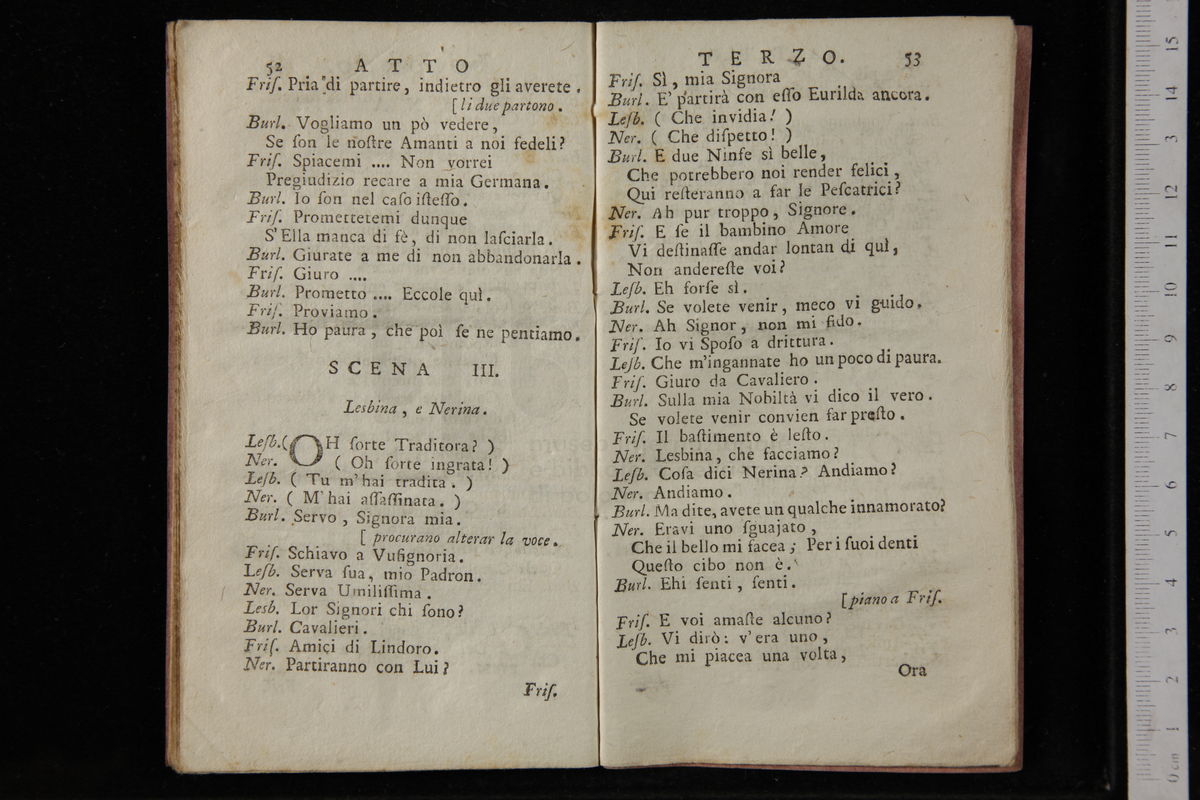 52 ATTO
Friſ. Pria di partire, indietro gli averete.
[ li due partono.
Burl. Vogliamo un pò vedere,
Se ſon le noſtre Amanti a noi fedeli?
Friſ. Spiacemi .... Non vorrei
Pregiudizio recare a mia Germana.
Burl. Io ſon nel caſo iſteſſo.
Friſ. Promettetemi dunque
S'Ella manca di fè, di non laſciarla.
Burl. Giurate a me di non abbandonarla.
Friſ. Giuro ....
Burl. Prometto .... Eccole quì.
Friſ. Proviamo.
Burl. Ho paura, che poì ſe ne pentiamo.
SCENA III.
Lesbina, e Nerina.
Leſb. ( OH ſorte Traditora? )
Ner. ( Oh ſorte ingrata! )
Leſb. ( Tu m'hai tradita. )
Ner. ( M'hai aſſaſſinata. )
Burl. Servo, Signora mia.
[ procurano alterar la voce.
Friſ. Schiavo a Vuſignoria.
Leſb. Serva ſua, mio Padron.
Ner. Serva Umiliſſima.
Lesb. Lor Signori chi ſono?
Burl. Cavalieri.
Friſ. Amici di Lindoro.
Ner. Partiranno con Lui?
Friſ.
TERZO. 53
Friſ. Sì, mia Signora
Burl. E' partirà con eſſo Eurilda ancora.
Leſb. ( Che invidia! )
Ner. ( Che diſpetto! )
Burl. E due Ninfe sì belle,
Che potrebbero noi render felici,
Qui reſteranno a far le Peſcatrici?
Ner. Ah pur troppo, Signore.
Friſ. E ſe il bambino Amore
Vi deſtinaſſe andar lontan di quì,
Non andereſte voi?
Leſb. Eh forſe sì.
Burl. Se volete venir, meco vi guido.
Ner. Ah Signor, non mi fido.
Friſ. Io vi Spoſo a drittura.
Leſb. Che m'ingannate ho un poco di paura.
Friſ. Giuro da Cavaliero.
Burl. Sulla mia Nobiltà vi dico il vero.
Se volete venir convien far preſto.
Friſ. Il baſtimento è leſto.
Ner. Lesbina, che facciamo?
Leſb. Coſa dici Nerina? Andiamo?
Ner. Andiamo.
Burl. Ma dite, avete un qualche innamorato?
Ner. Eravi uno ſguajato,
Che il bello mi facea; Per i ſuoi denti
Queſto cibo non è.
Burl. Ehi ſenti, ſenti.
[piano a Friſ.
Friſ. E voi amaſte alcuno?
Leſb. Vi dirò: v'era uno,
Che mi piacea una volta,
Ora
0 cm 1 2 3 4 5 6 7 8 9 10 11 12 3 14 15